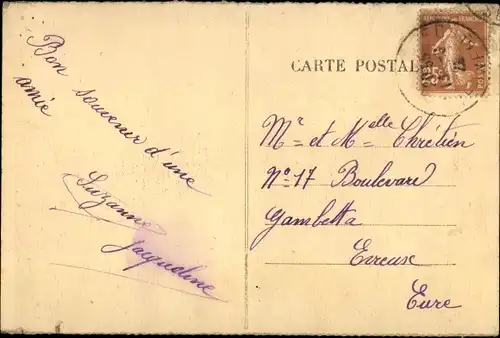 Bon souvenir d'une
amie
Suzanne
Jacqueline
CARTE POSTALE
Mr et Melle Chrétien
No 17 Boulevard
Gambetta
Evreux
Eure